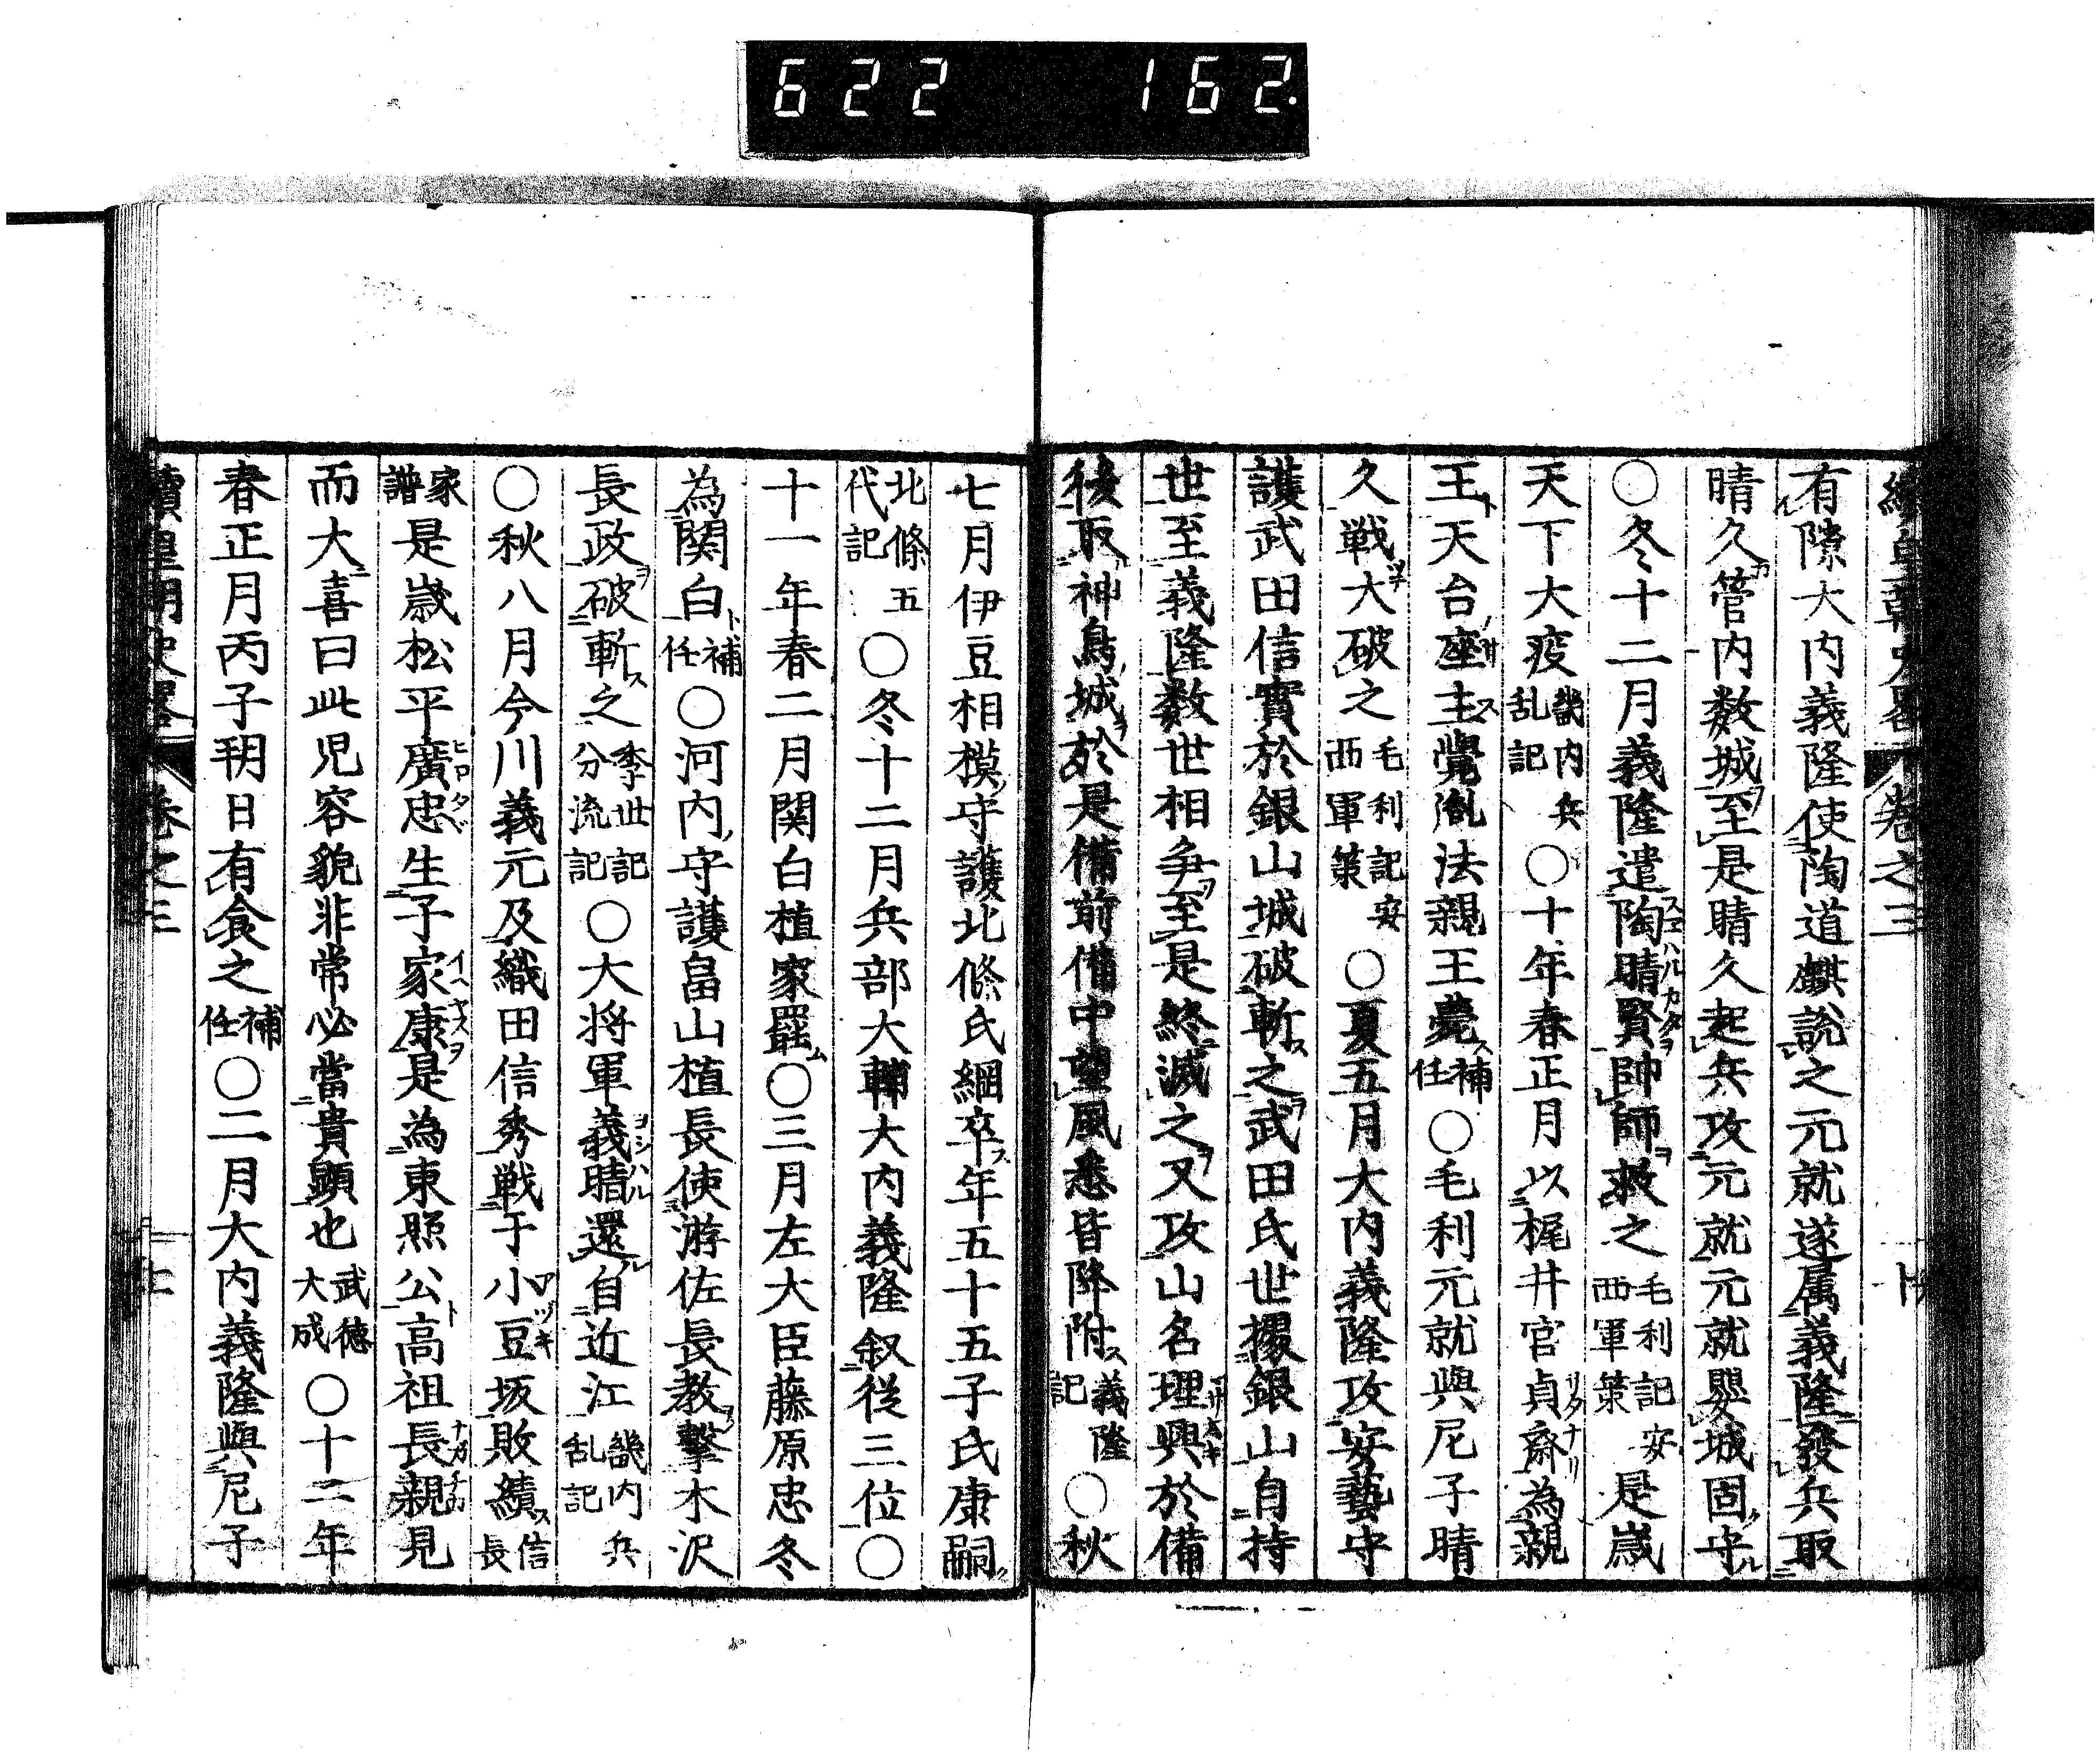 622 162.
有隙大内義隆使陶道麒說之元就遂属義隆發兵取
晴久管内数城至是晴久起兵攻元就元就嬰城固守
〇冬十二月義隆遣陶晴賢帥師救之毛利記安西軍策是歳
天下大疫畿内兵乱記〇十年春正月以梶井宮貞齋為親
王天台座主覺胤法親王薨補任〇毛利元就與尼子晴
久戦大破之毛利記安西軍策〇夏五月大内義隆攻安藝守
護武田信實於銀山城破斬之武田氏世據銀山自持
世至義隆数世相争至是終滅之又攻山名理興於備
後取神島城於是備前備中望風悉皆降附義隆記〇秋
七月伊豆相模守護北條氏綱卒年五十五子氏康嗣
北條五代記〇冬十二月兵部大輔大内義隆叙從三位〇
十一年春二月関白植家罷〇三月左大臣藤原忠冬
為関白補任〇河内守護畠山植長使游佐長教撃木沢
長政破斬之季世記分流記〇大将軍義晴還自近江畿内兵乱記
〇秋八月今川義元及織田信秀戦于小豆坂敗績信長
家譜是歳松平廣忠生子家康是為東照公高祖長親見
而大喜曰此児容貌非常必當貴顕也武徳大成〇十二年
春正月丙子朔日有食之補任〇二月大内義隆與尼子